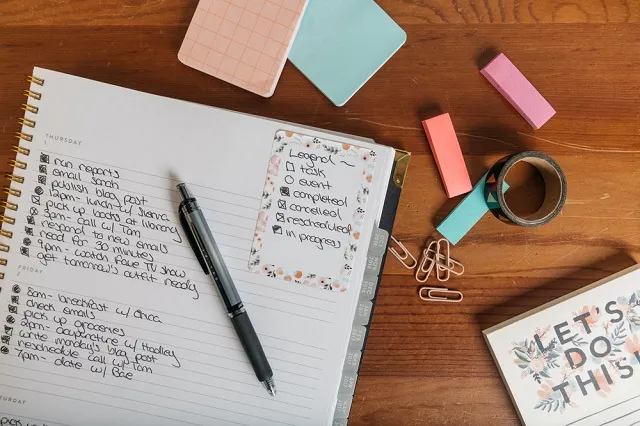 THURSDAY
1
run reports
email Sarah
publish blog post
12pm- lunch w/ Sienna
pick up books at library
3pm- call w/ Tam
respond to new emails
read for 30 minutes
9pm- watch fave TV show
get tomorrow's outfit ready
FRIDAY
2
8am- breakfast w/
check emails
pick up groceries
2pm- w/ Hadley
write monday's blog post
reschedule call w/ Tam
7pm- date w/ Bae
Legend
task
event
completed
cancelled
rescheduled
in progress
LET'S
DO
THIS